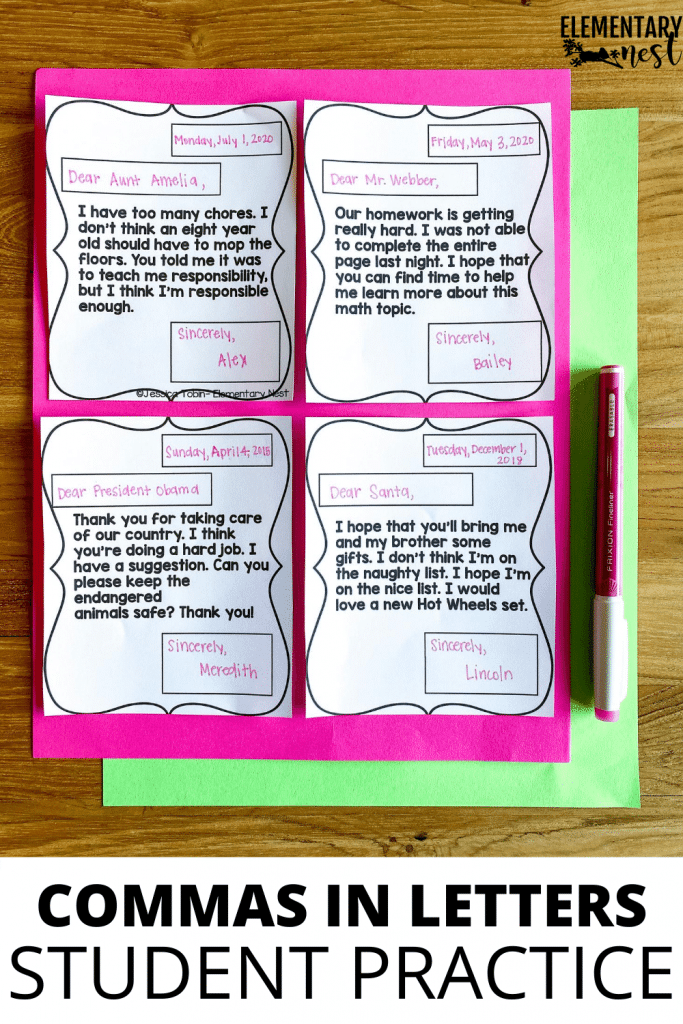 ELEMENTARY
nest
Monday, July 1, 2020
Dear Aunt Amelia,
I have too many chores. I
don't think an eight year
old should have to mop the
floors. You told me it was
to teach me responsibility,
but I think I'm responsible
enough.
Sincerely,
Alex
©Jessica Tobin- Elementary Nest
Friday, May 3, 2020
Dear Mr. Webber,
Our homework is getting
really hard. I was not able
to complete the entire
page last night. I hope that
you can find time to help
me learn more about this
math topic.
Sincerely,
Bailey
Sunday, April 4, 2015
Dear President Obama
Thank you for taking care
of our country. I think
you're doing a hard job. I
have a suggestion. Can you
please keep the
endangered
animals safe? Thank you!
Sincerely,
Meredith
Tuesday, December 1,
2019
Dear Santa,
I hope that you'll bring me
and my brother some
gifts. I don't think I'm on
the naughty list. I hope I'm
on the nice list. I would
love a new Hot Wheels set.
Sincerely,
Lincoln
FRIXION Fineliner
COMMAS IN LETTERS
STUDENT PRACTICE